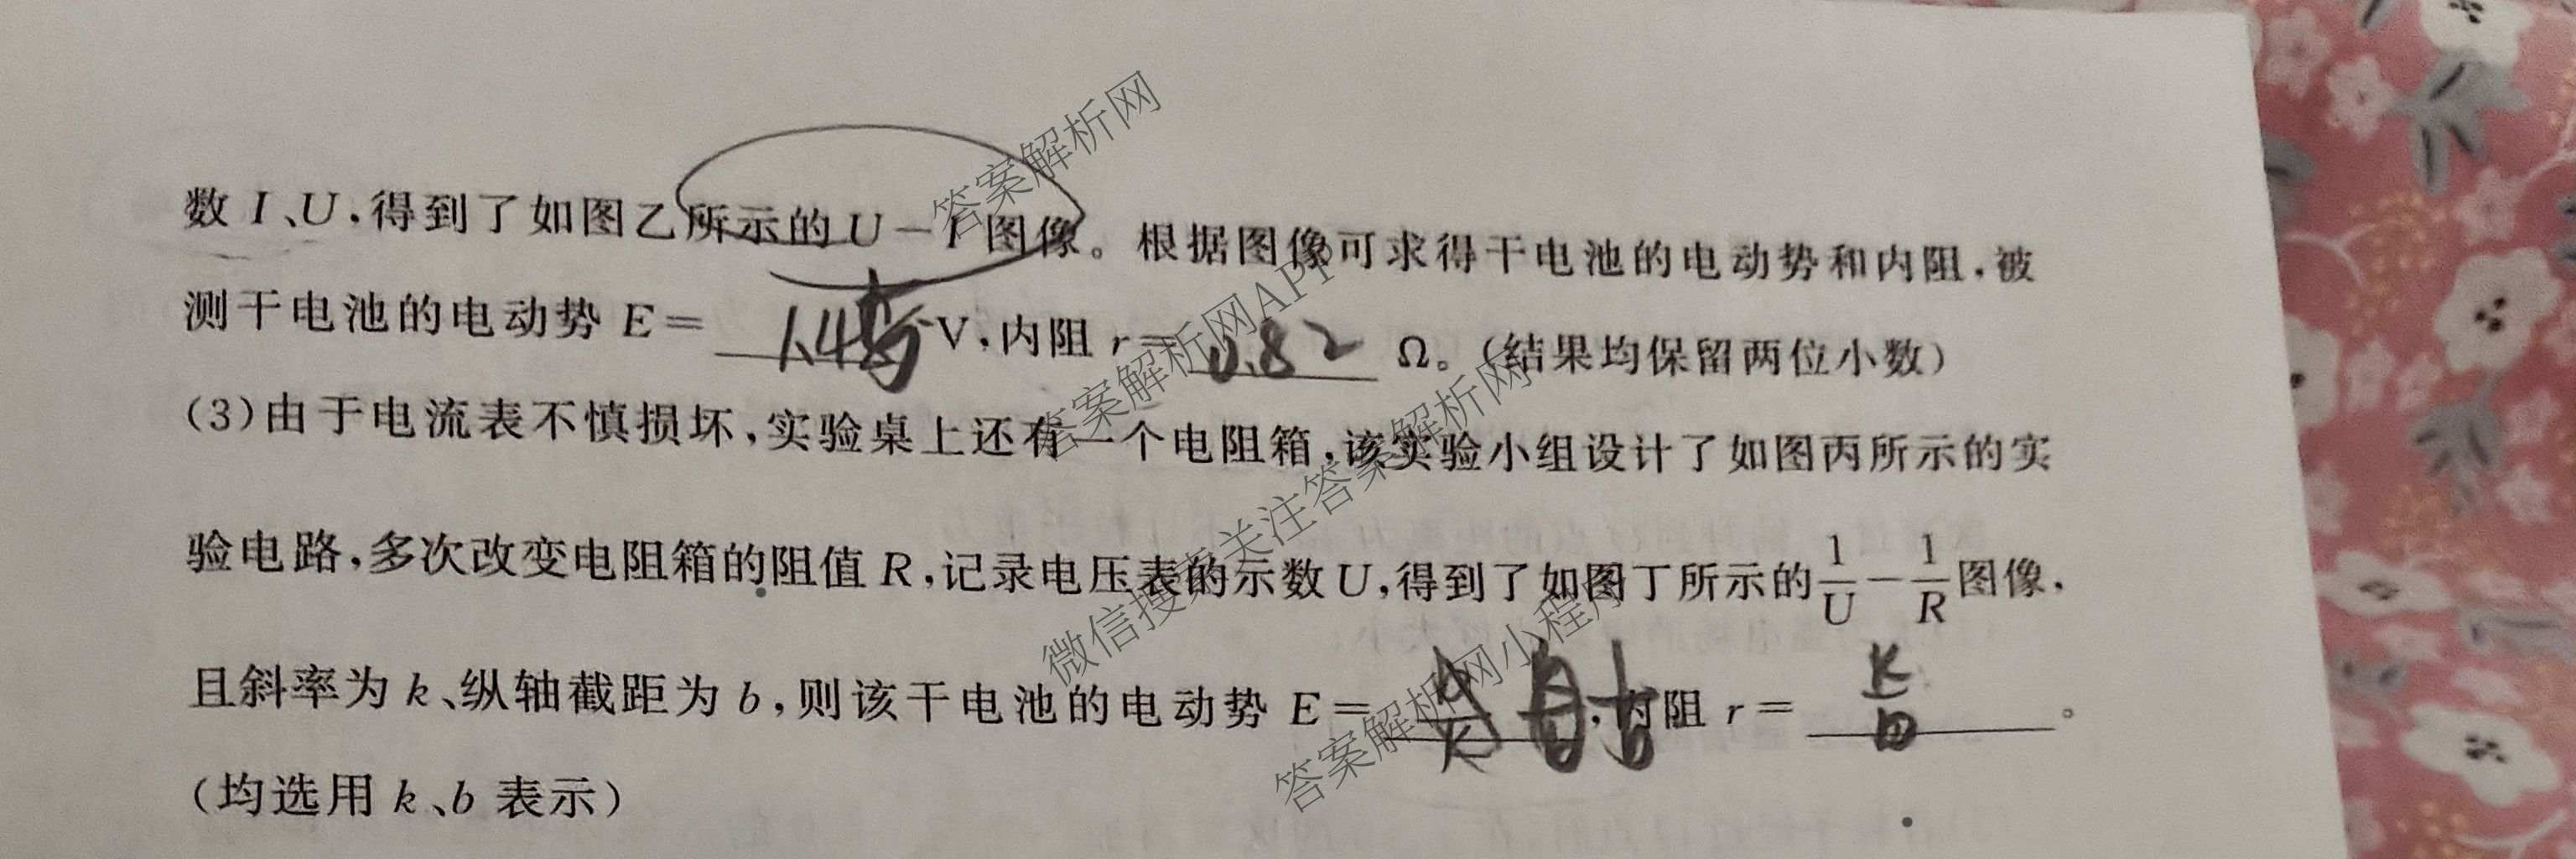 数 I、U,得到了如图乙所示的 U－I 图像。根据图像可求得干电池的电动势和内阻,被
测干电池的电动势 E= 1.45 V,内阻 r= 0.82 Ω。(结果均保留两位小数)
(3)由于电流表不慎损坏,实验桌上还有一个电阻箱,该实验小组设计了如图丙所示的实
验电路,多次改变电阻箱的阻值 R,记录电压表的示数 U,得到了如图丁所示的 1/U－1/R 图像,
且斜率为 k、纵轴截距为 b,则该干电池的电动势 E= 1/b ,内阻 r= k/b 。
(均选用 k、b 表示)
答案解析网
答案解析网APP
微信搜索关注答案解析网
答案解析网小程序